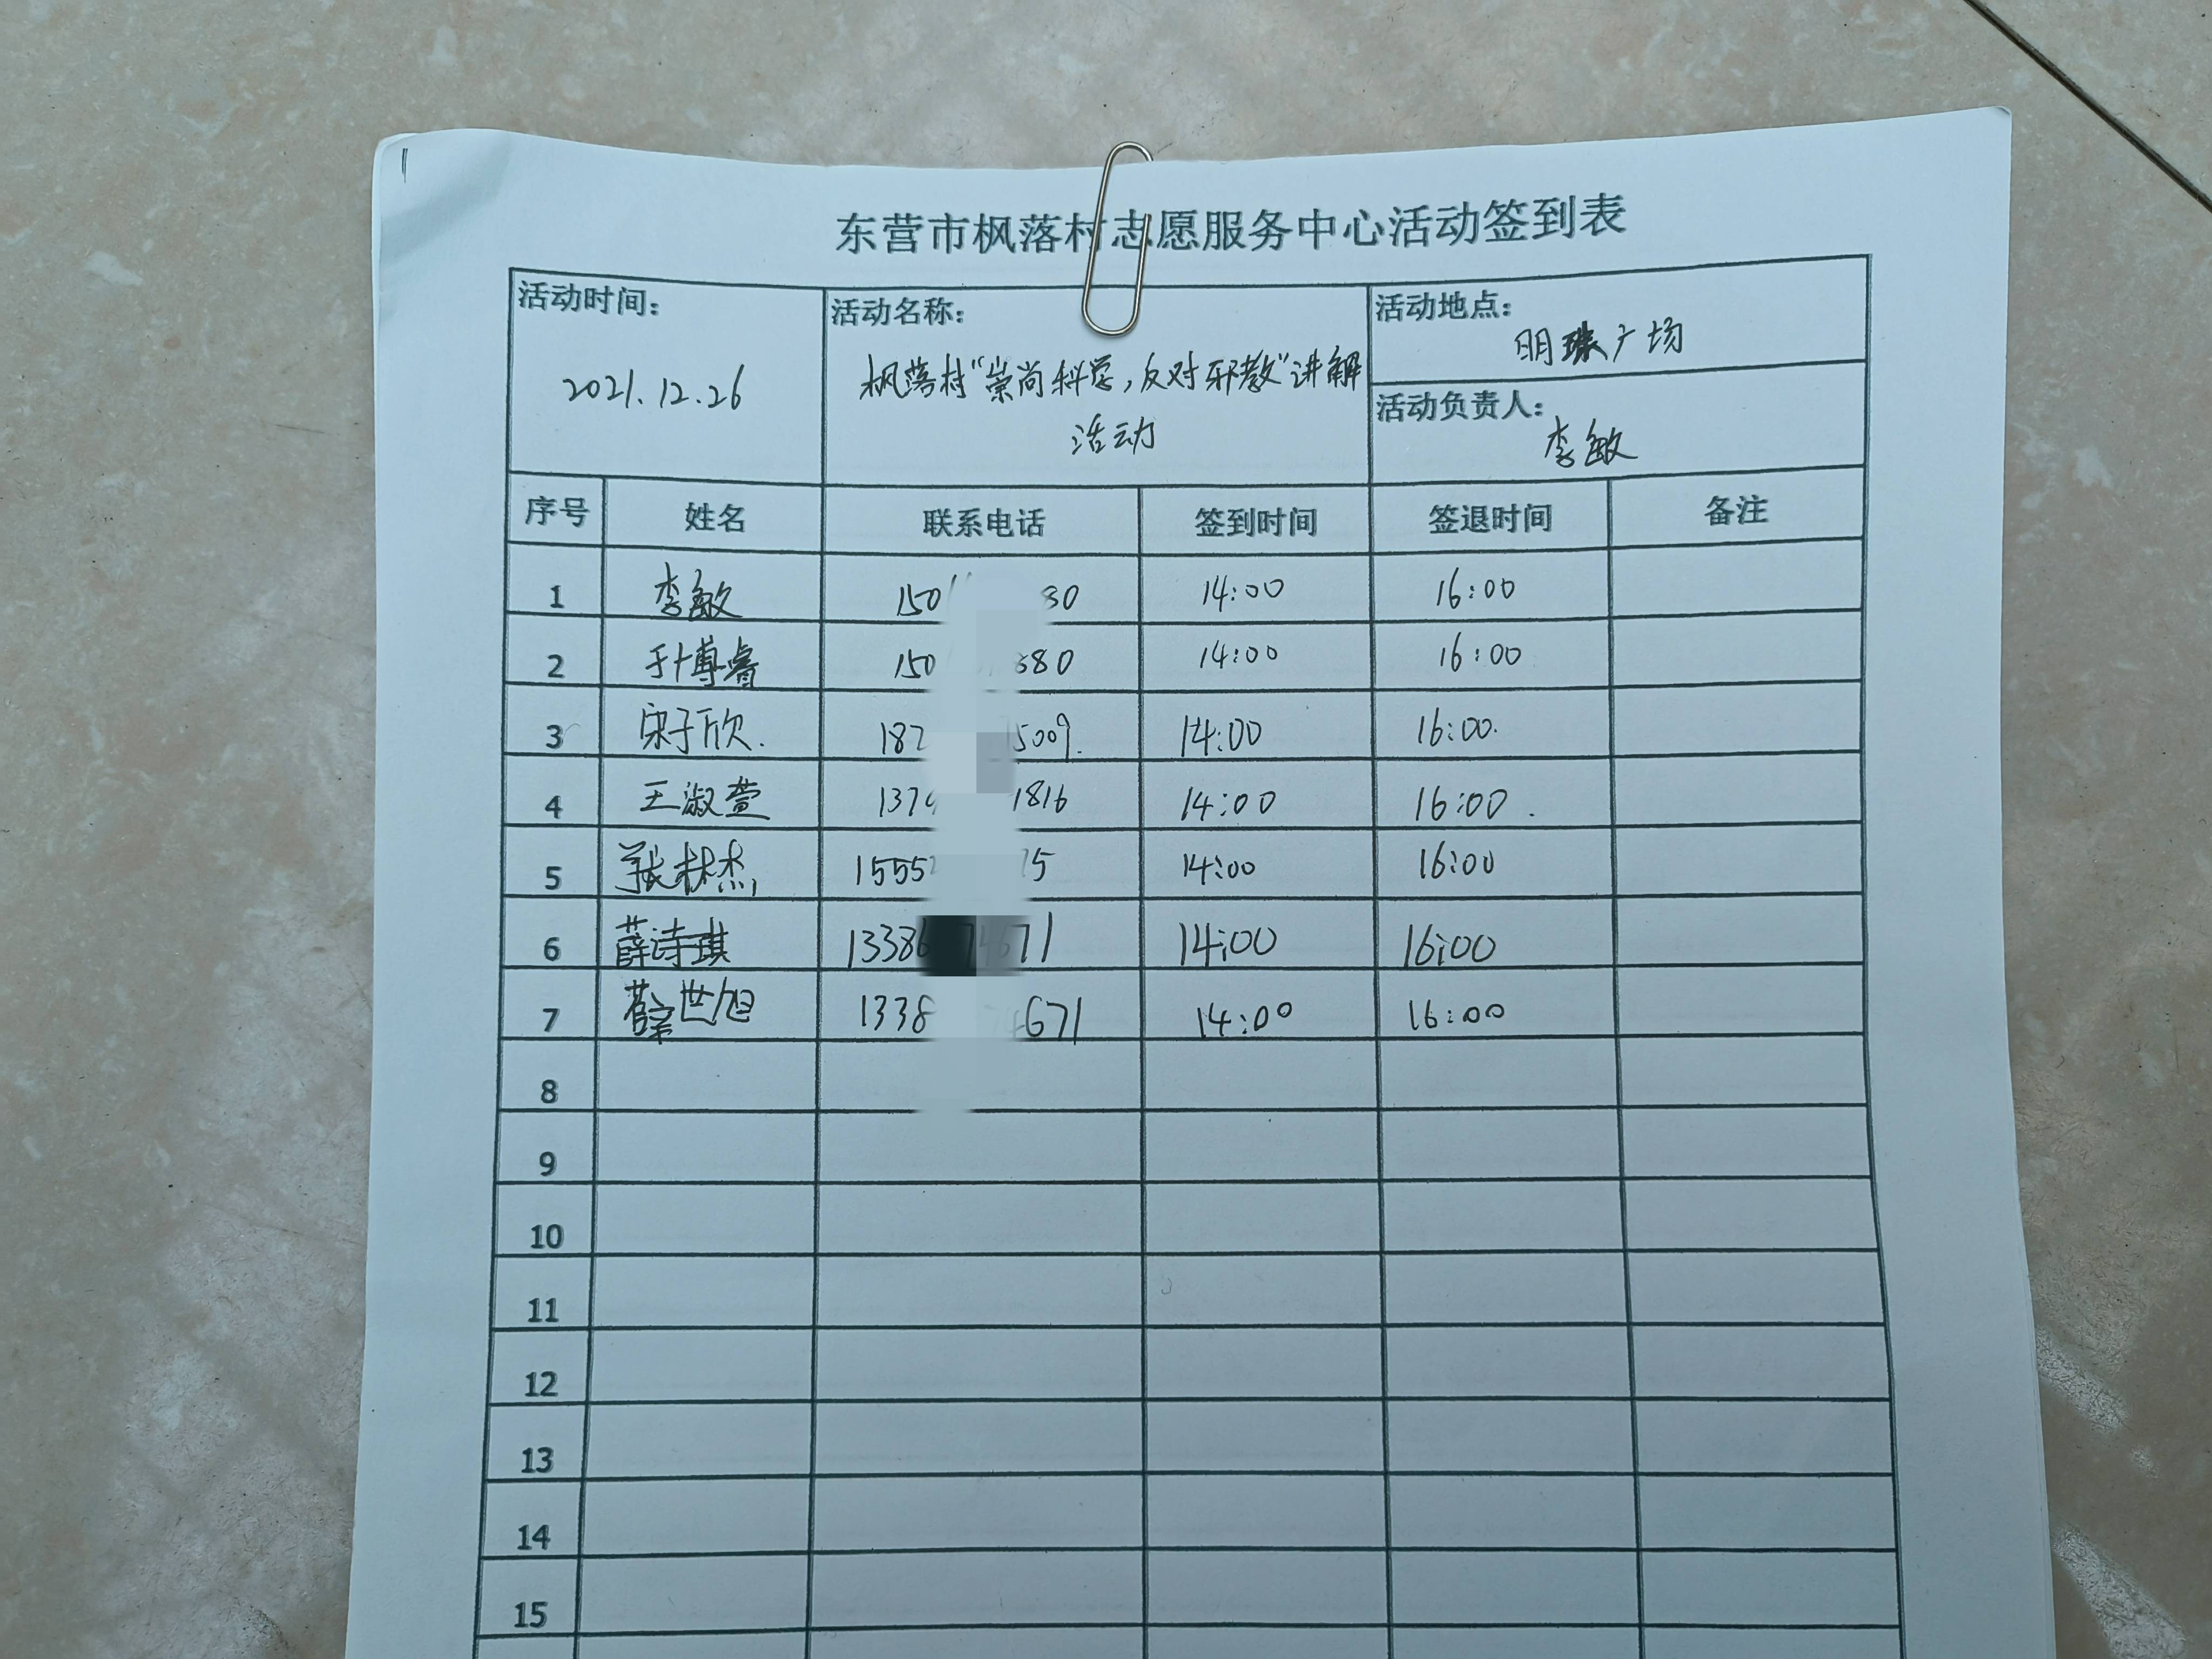 东营市枫落村志愿服务中心活动签到表
活动时间： 活动名称： 活动地点：
2021.12.26 枫落村“崇尚科学，反对邪教”讲解 明珠广场
活动 活动负责人：
李敏
序号 姓名 联系电话 签到时间 签退时间 备注
1 李敏 150 80 14:00 16:00
2 于博睿 150 880 14:00 16:00
3 宋子欣. 182 1509. 14:00 16:00.
4 王淑萱 137 1816 14:00 16:00.
5 张林杰 1555 75 14:00 16:00
6 薛诗琪 1338 71 14:00 16:00
7 薛世旭 1338 4671 14:00 16:00
8
9
10
11
12
13
14
15